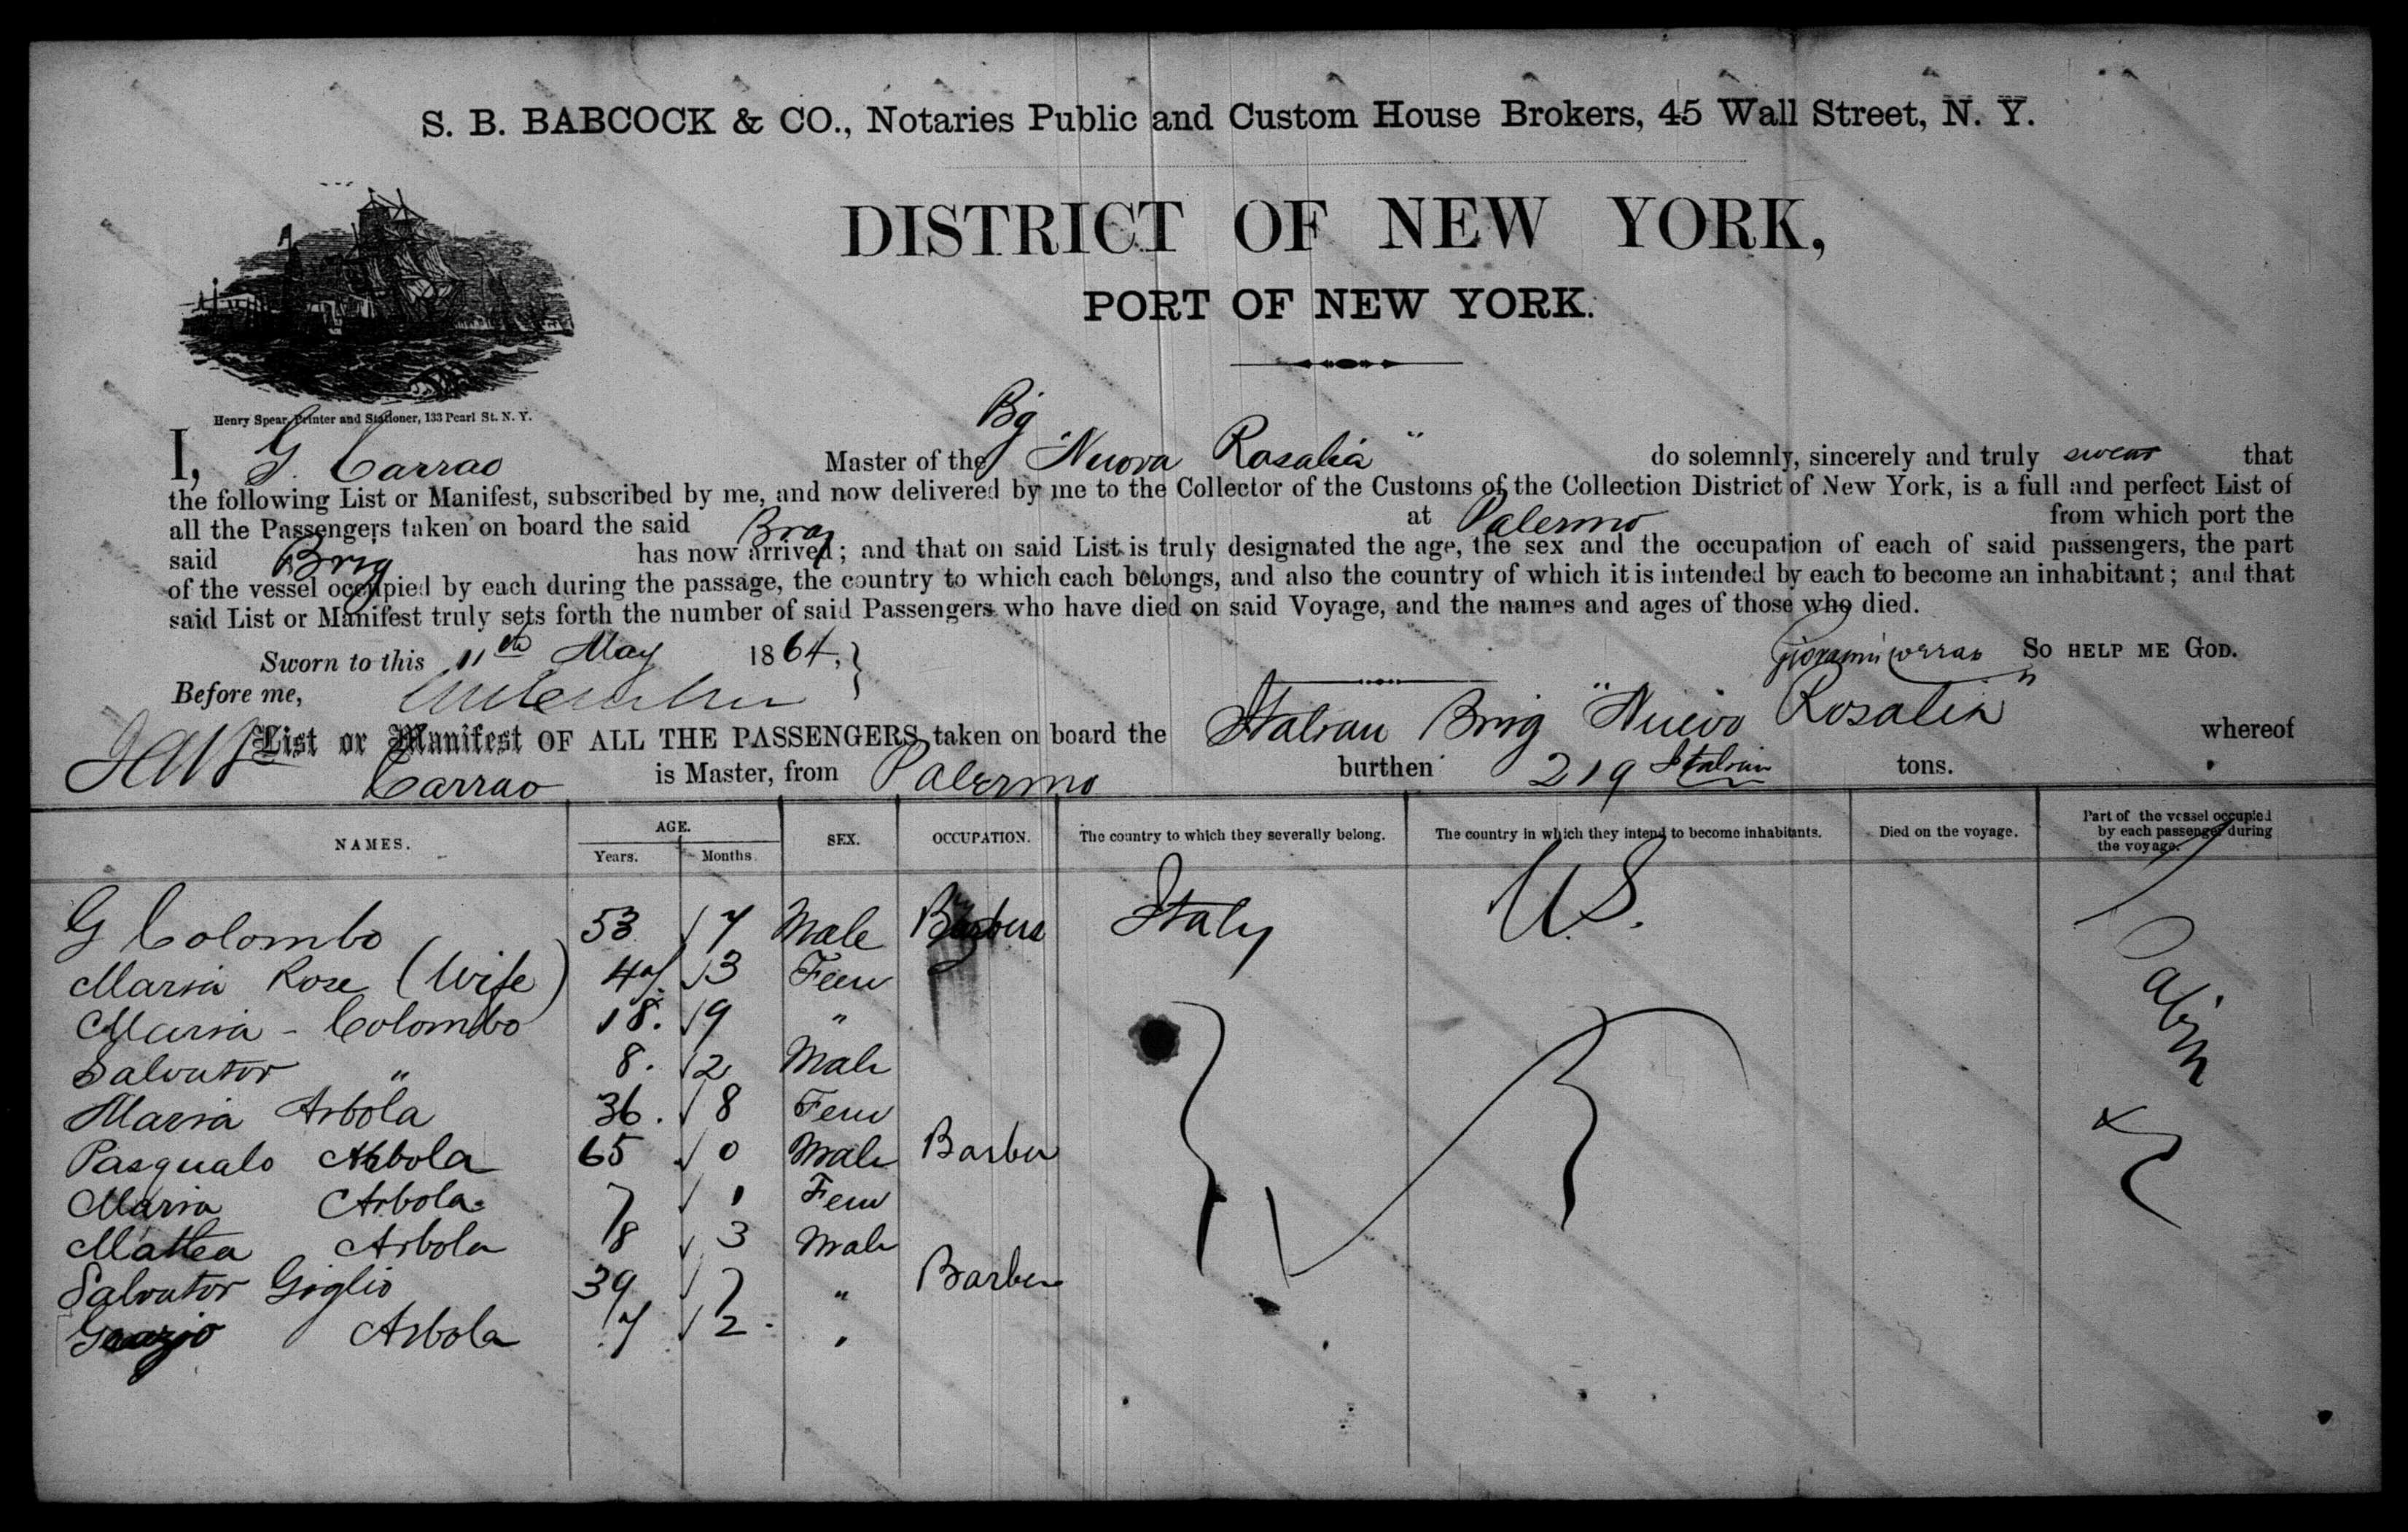 S. B. BABCOCK & CO., Notaries Public and Custom House Brokers, 45 Wall Street, N. Y.
DISTRICT OF NEW YORK,
PORT OF NEW YORK.
Henry Spear, Printer and Stationer, 133 Pearl St. N. Y.
I, G. Carrao Master of the Bg "Nuova Rosalia" do solemnly, sincerely and truly swear that
the following List or Manifest, subscribed by me, and now delivered by me to the Collector of the Customs of the Collection District of New York, is a full and perfect List of
all the Passengers taken on board the said Brig at Palermo from which port the
said Brig has now arrived; and that on said List is truly designated the age, the sex and the occupation of each of said passengers, the part
of the vessel occupied by each during the passage, the country to which each belongs, and also the country of which it is intended by each to become an inhabitant; and that
said List or Manifest truly sets forth the number of said Passengers who have died on said Voyage, and the names and ages of those who died.
Sworn to this 11th May 1864, Giovanni Corrao So HELP ME GOD.
Before me,
List or Manifest OF ALL THE PASSENGERS taken on board the Italian Brig "Nuevo Rosalia" whereof
Carrao is Master, from Palermo burthen 219 Italian tons.
NAMES. AGE. Years. Months. SEX. OCCUPATION. The country to which they severally belong. The country in which they intend to become inhabitants. Died on the voyage. Part of the vessel occupied by each passenger during the voyage.
G Colombo 53 7 Male Barbers Italy U.S. Cabin
Maria Rose (Wife) 47. 3 Fem
Maria - Colombo 18. 9 "
Salvator " 8. 2 Male
Maria Arbola 36. 8 Fem
Pasqualo Arbola 65 0 Male Barber
Maria Arbola 7 1 Fem
Mattea Arbola 18 3 Male
Salvator Giglio 39 7 " Barber
Arbola 17 2 "